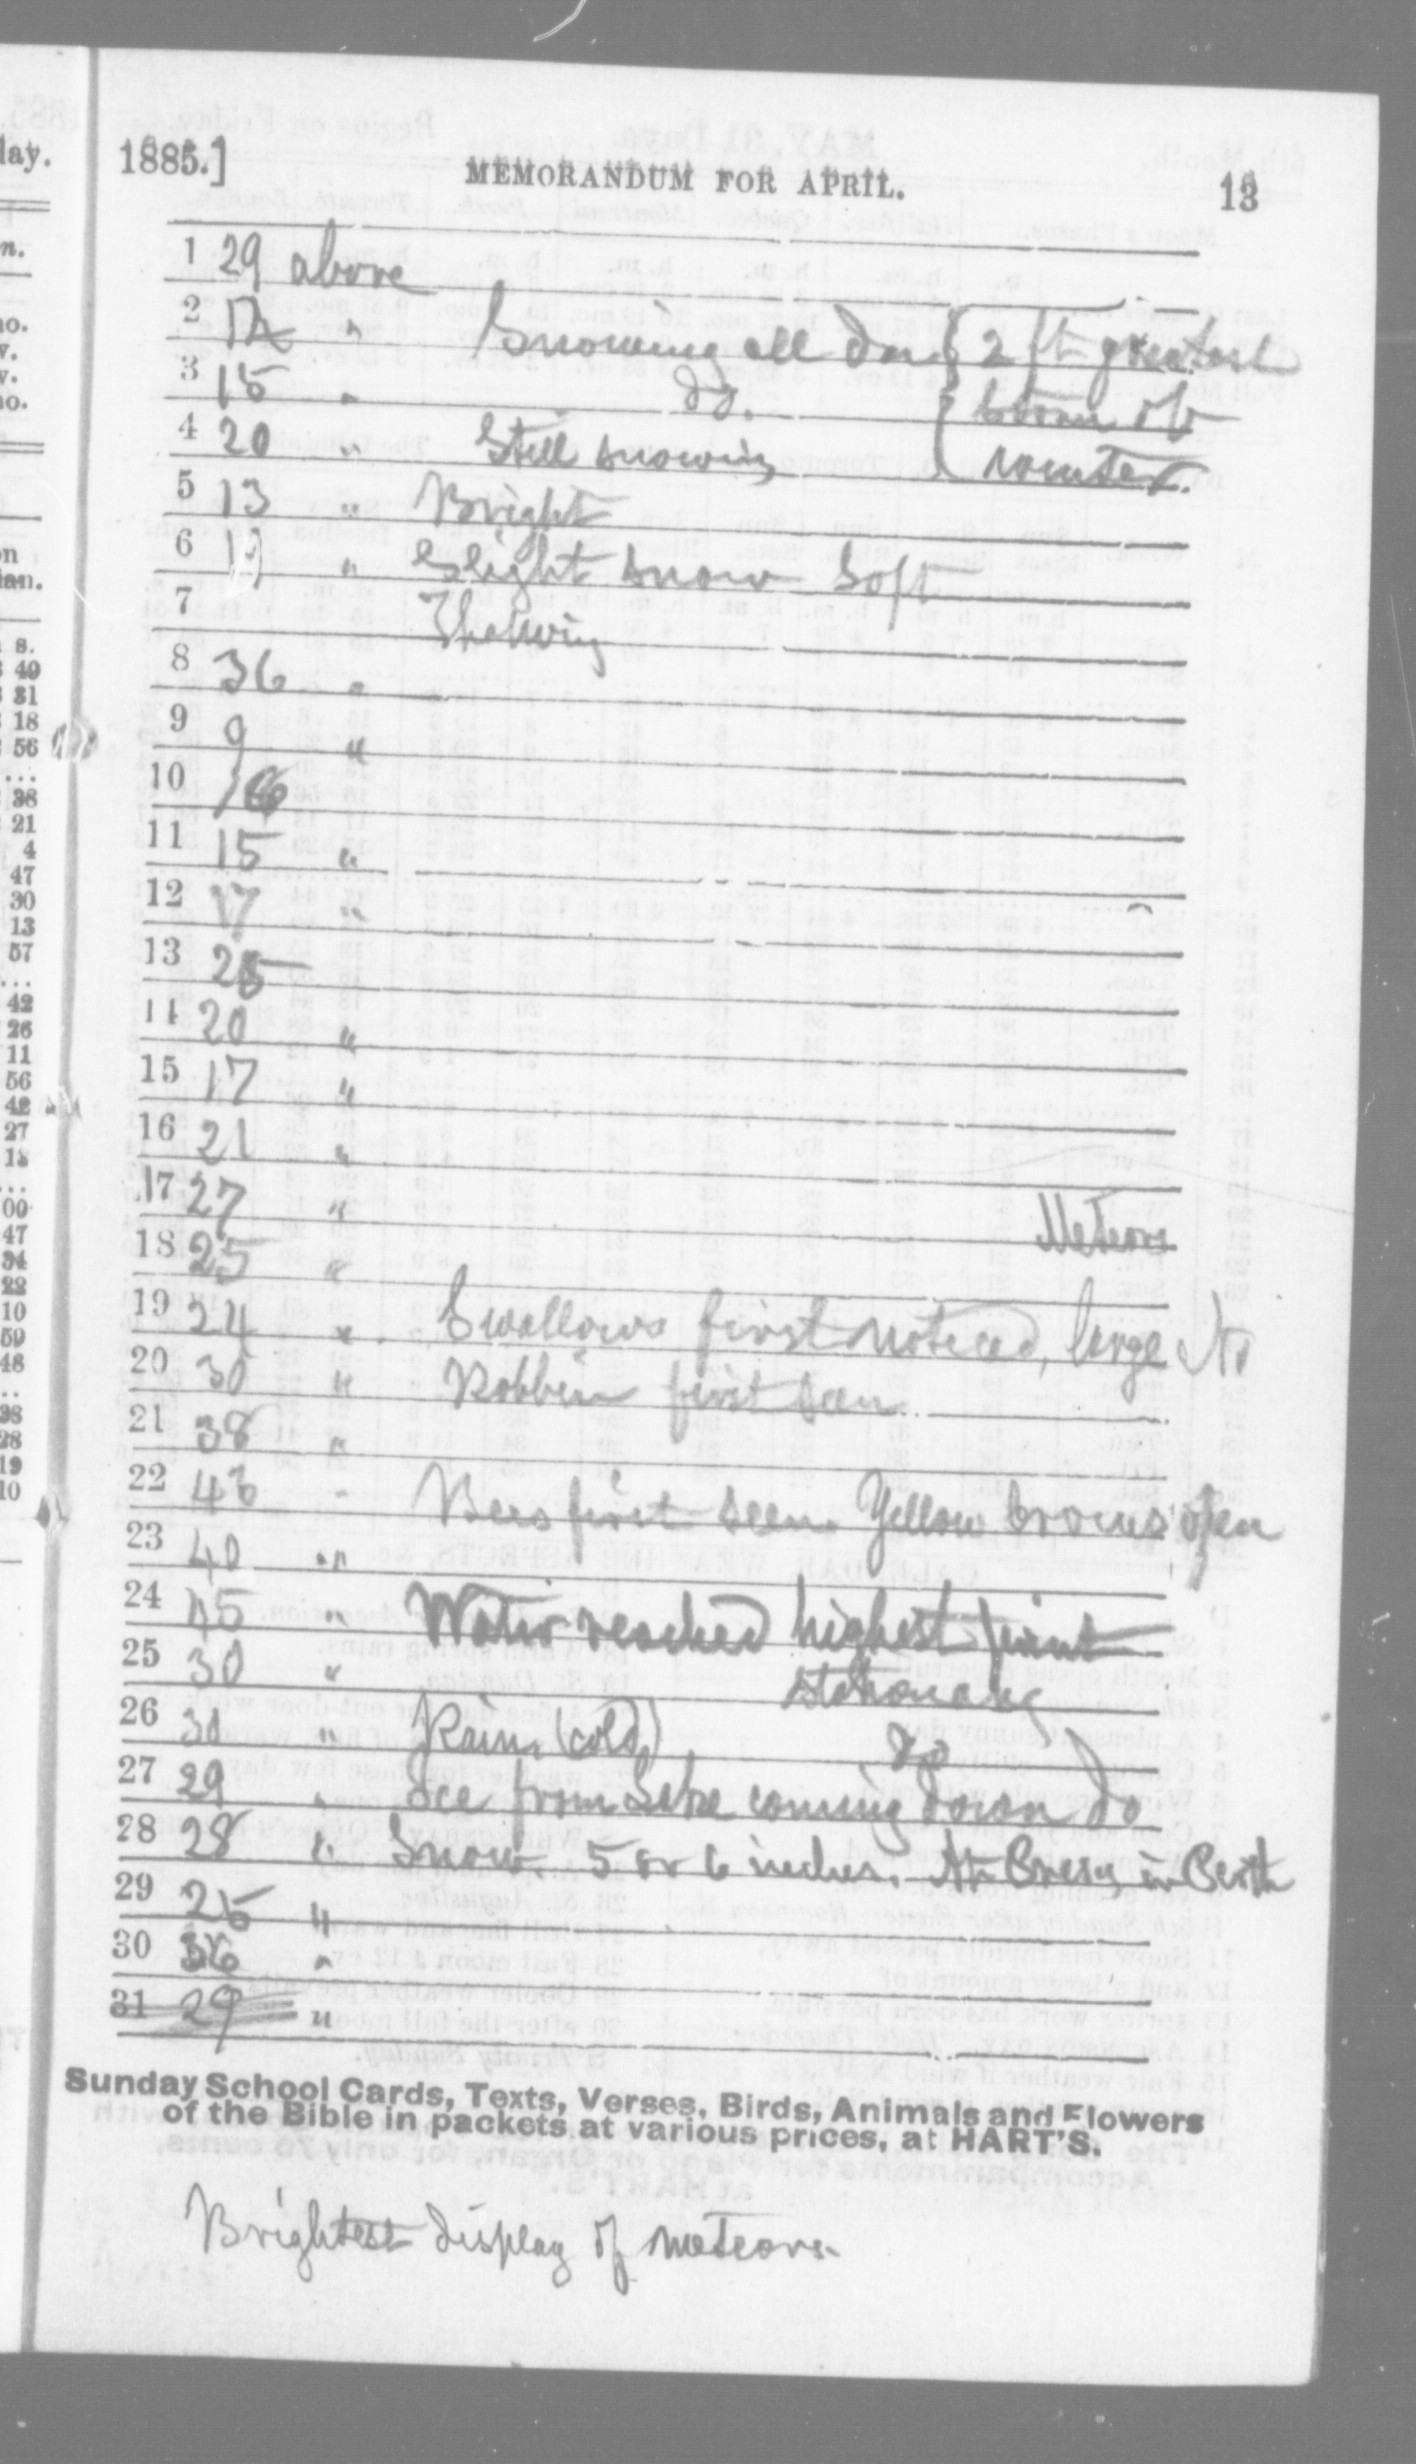 1885.] MEMORANDUM FOR APRIL. 13
1 29 above
2 12 " Snowing all day { 2 ft greatest
3 15 " do. { storm of
4 20 " Still snowing { winter.
5 13 " Bright
6 " Slight snow Soft
7 Thawing
8 36 "
9 9 "
10 16
11 15 "
12 17 "
13 25
14 20 "
15 17 "
16 21 "
17 27 "
Meteors
18 25 "
19 24 " Swallows first noticed, large No
20 30 " Robbin first seen
21 38 "
22 43 " Bees first seen Yellow crocus open
23 40 "
24 45 " Water reached highest point
25 30 " stationary
26 30 " Rain (cold) do
27 29 " Ice from Lake coming down do
28 28 " Snow. 5 or 6 inches. in Perth
29 25 "
30 36 "
31 29 "
Sunday School Cards, Texts, Verses, Birds, Animals and Flowers
of the Bible in packets at various prices, at HART'S.
Brightest display of meteors.